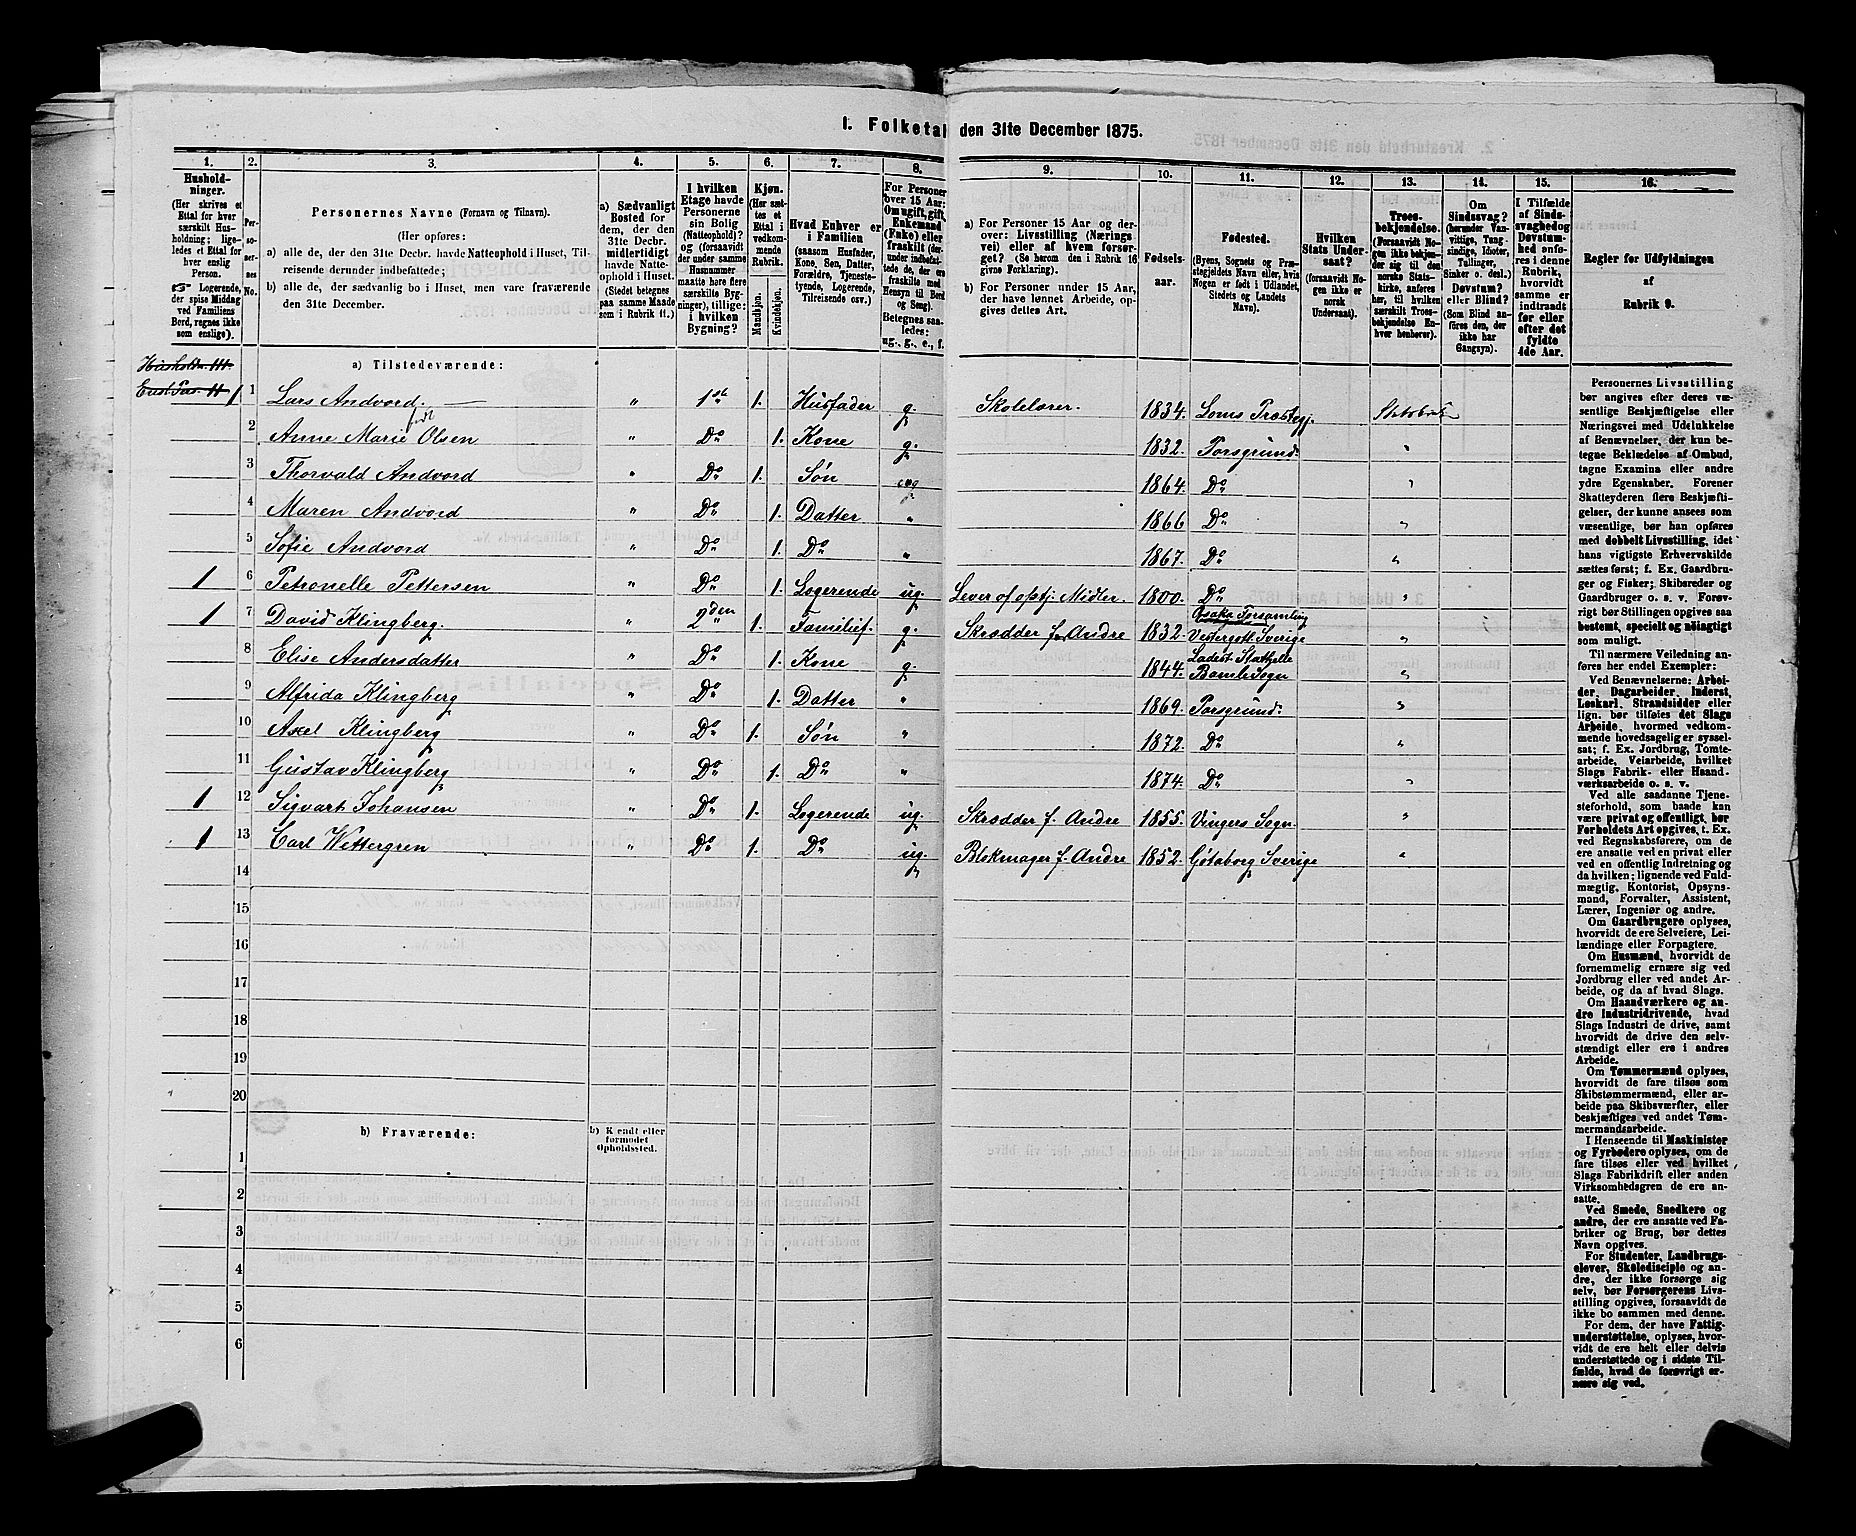 I. Folketal den 31te December 1875.
1. 2. 3. 4. 5. 6. 7. 8. 9. 10. 11. 12. 13. 14. 15. 16.
Hushold-
ninger.
(Her skrives et
Ettal for hver
særskilt Hus-
holdning; lige-
ledes et Ettal for
hver enslig
Person.
☞ Logerende,
der spise Middag
ved Familiens
Bord, regnes ikke
som enslige).
Per-
so-
ner-
nes
No.
Personernes Navne (Fornavn og Tilnavn).
(Her opføres:
a) alle de, der den 31te Decbr. havde Natteophold i Huset, Til-
reisende derunder indbefattede;
b) alle de, der sædvanlig bo i Huset, men vare fraværende
den 31te December.
a) Sædvanligt
Bosted for
dem, der den
31te Decbr.
midlertidigt
havde Natte-
ophold i Huset.
(Stedet betegnes
paa samme Maade
som i Rubrik 11.)
I hvilken
Etage havde
Personerne
sin Bolig
(Natteophold)?
og (forsaavidt
der under samme
Husnummer
maatte høre flere
særskilte Byg-
ninger), tillige:
i hvilken
Bygning?
Kjøn.
(Her sæt-
tes et
Ettal i
vedkom-
mende
Rubrik.
Mandkjøn.
Kvindekjøn.
Hvad Enhver er
i Familien
(saasom Husfader,
Kone, Søn, Datter,
Forældre, Tjeneste-
tyende, Logerende,
Tilreisende osv.)
For Personer
over 15 Aar:
Om ugift, gift,
Enkemand
(Enke) eller
fraskilt (der-
under indbefat-
tede de, der ere
fraskilte med
Hensyn til Bord
og Seng).
Betegnes saa-
ledes:
ug., g., e., f.
a) For Personer 15 Aar og der-
over: Livsstilling (Nærings
vei) eller af hvem forsør-
get? (Se herom den i Rubrik 16
givne Forklaring).
b) For Personer under 15 Aar,
der have lønnet Arbeide, op-
gives dettes Art.
Fødsels-
aar.
Fødested.
(Byens, Sognets og Præ-
stegjeldets Navn eller, hvis
Nogen er født i Udlandet,
Stedets og Landets
Navn).
Hvilken
Stats Under-
saat?
(forsaavidt No-
gen ikke er
norsk
Undersaat).
Troes-
bekjendelse.
(Forsaavidt No-
gen ikke bekjen-
der sig til den
norske Stats-
kirke, anføres
her, til hvilken
særskilt Troes-
bekjendelse En-
hver henhører).
Om
Sindssvag?
(herunder Van-
vittige, Tung-
sindige, Idioter,
Tullinger,
Sinker o. desl.)
Døvstum?
eller Blind?
(Som Blind an-
føres den, der
ikke har
Gangsyn).
I Tilfælde
af Sinds-
svaghed og
Døvstum-
hed anfø-
res i denne
Rubrik,
hvorvidt
samme er
indtraadt
før eller
efter det
fyldte
4de Aar.
Regler for Udfyldningen
af
Rubrik 9.
a) Tilstedeværende:
1 1 Lars Andvord. " 1st 1. Husfader g. Skolelærer. 1834. Loms Præstegj. Statskirken
født
2 Anne Marie Olsen " Do 1. Kone g. 1832. Porsgrund. "
3 Thorvald Andvord " Do 1. Søn ug 1864. Do "
4 Maren Andvord " Do 1. Datter " 1866 Do "
5 Sofie Andvord " Do 1. Do " 1867. Do "
1 6 Petronelle Pettersen " Do 1. Logerende ug. Lever af opstj. Midler. 1800. Do "
Forsamling
1 7 David Klingberg. " 2den 1. Familief. g. Skrædder f. Andre 1832. Vestergotl. Sverige "
Ladest. Stathelle
8 Elise Andersdatter " Do 1. Kone g. 1844. Bamle Sogn "
9 Alfrida Klingberg " Do 1. Datter " 1869. Porsgrund. "
10 Axel Klingberg " Do 1. Søn " 1872. Do "
11 Gustav Klingberg " Do 1. Do " 1874. Do "
1 12 Sigvart Johansen " Do 1. Logerende ug. Skrædder f. Andre 1855. Vingers Sogn. "
1 13 Carl Wettergren " Do 1. Do ug. Blokmager f. Andre 1852. Gøtaborg Sverige "
14
15
16
17
18
19
20
b) Fraværende:
b) Kjendt eller
formodet
Opholdssted.
1
2
3
4
5
6
Personernes Livsstilling
bør angives efter deres væ-
sentlige Beskjæftigelse eller
Næringsvei med Udelukkelse
af Benævnelser, der kun be-
tegne Beklædelse af Ombud,
tagne Examina eller andre
ydre Egenskaber. Forener
Skatteyderen flere Beskjæfti-
gelser, der kunne ansees som
væsentlige, bør han opføres
med dobbelt Livsstilling, idet
hans vigtigste Erhvervskilde
sættes først; f. Ex. Gaardbru-
ger og Fisker; Skibsreder og
Gaardbruger o. s. v. Forøv-
rigt bør Stillingen opgives saa
bestemt, specielt og nøiagtigt
som muligt.
Til nærmere Veiledning an-
føres her endel Exempler:
Ved Benævnelserne: Arbei-
der, Dagarbeider, Inderst,
Løskarl, Strandsidder eller
lign. bør tilføies det Slags
Arbeide, hvormed vedkom-
mende hovedsagelig er syssel-
sat; f. Ex. Jordbrug, Tomte-
arbeide, Veiarbeide, hvilket
Slags Fabrik- eller Haand-
værksarbeide o. s. v.
Ved alle saadanne Tjene-
steforhold, som baade kan
være privat og offentligt, bør
Forholdets Art opgives, t. Ex.
ved Regnskabsførere, om de
ere ansatte ved en privat eller
ved en offentlig Indretning og
da hvilken; lignende ved Fuld-
mægtig, Kontorist, Opsyns-
mand, Forvalter, Assistent,
Lærer, Ingeniør og andre.
Om Gaardbrugere oplyses,
hvorvidt de ere Selveiere, Lei-
lændinge eller Forpagtere.
Om Husmænd, hvorvidt de
fornemmelig ernære sig ved
Jordbrug eller ved andet Ar-
beide, og da af hvad Slags.
Om Haandværkere og an-
dre Industridrivende, hvad
Slags Industri de drive, samt
hvorvidt de drive den selv-
stændigt eller ere i andres
Arbeide.
Om Tømmermænd oplyses,
hvorvidt de fare tilsøs som
Skibstømmermænd, eller ar-
beide paa Skibsværfter, eller
beskjæftiges ved andet Tøm-
mermandsarbeide.
I Henseende til Maskinister
og Fyrbødere oplyses, om de
fare tilsøs eller ved hvilket
Slags Fabrikdrift eller anden
Virksomhedsgren de ere an-
satte.
Ved Smede, Snedkere og
andre, der ere ansatte ved Fa-
briker og Brug, bør dettes
Navn opgives.
For Studenter, Landbrugs-
elever, Skoledisciple og an-
dre, der ikke forsørge sig
selv, bør Forsørgerens Livs-
stilling opgives, forsaavidt de
ikke bo sammen med denne.
For dem, der have Fattig-
understøttelse, oplyses, hvor-
vidt de ere helt eller delvis
understøttede og i sidste Til-
fælde, hvad de forøvrigt er-
nære sig ved.